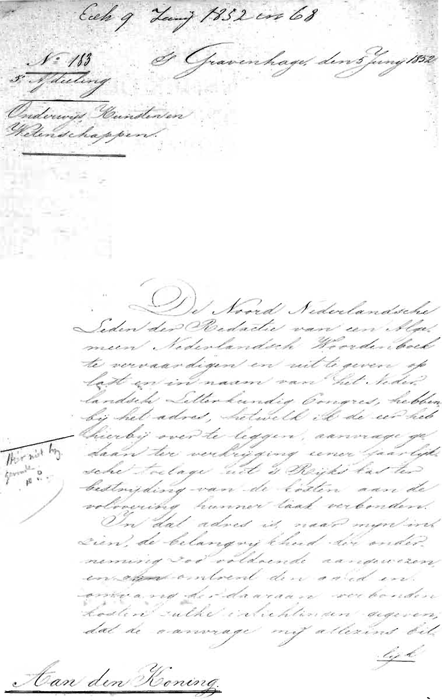 Exh 9 Juny 1852 no 68
No 183
's Gravenhage, den 5 Juny 1852
5e Afdeeling
Onderwijs, Kunsten en
Wetenschappen.
De Noord Nederlandsche
Leden der Redactie van een Alge
meen Nederlandsch Woordenboek
te vervaardigen en uit te geven op
last en in naam van het Neder
landsch Letterkundig Congres, hebben
bij het adres, hetwelk ik de eer heb
hierbij over te leggen, aanvrage ge
daan ter verkrijging eener jaarlyk
sche toelage uit 's Rijks kas ter
bestrijding van de kosten aan de
volvoering hunner taak verbonden.
In dat adres is, naar mijn in
zien, de belangrijkheid der onder
neming zoo voldoende aangewezen
en omtrent den aard en
omvang der daaraan verbonden
kosten zulke inlichtingen gegeven,
dat de aanvrage mij allezins bil
lijk
Hier niet
Aan den Koning.